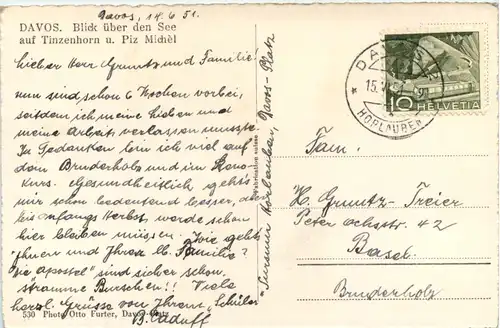 Davos, 14.6.51.
DAVOS. Blick über den See
auf Tinzenhorn u. Piz Michèl
Lieber Herr Gruntz und Familie
nun sind schon 6 Wochen vorbei,
seitdem ich meine lieben und
meine Arbeit, verlassen musste.
In Gedanken bin ich viel auf
dem Bruderholz und im
kurs. Gesundheitlich geht's
mir schon bedeutend besser, aber
bis anfangs Herbst, werde schon
hier bleiben müssen. Wie geht's
Ihnen und Ihrer lb. Familie?
"die apostel" sind sicher schon
stramme Burschen!! Viele
herzl. Grüsse von Ihrem Schüler
B. Caduff
530 Photo Otto Furter, Davos-Platz
Davos-Platz
Fabrication suisse
DAVOS
15.VI.51
HORLAUBEN
10 HELVETIA
Fam.
H. Gruntz-Freier
Peter Ochsstr. 42
Basel.
Bruderholz